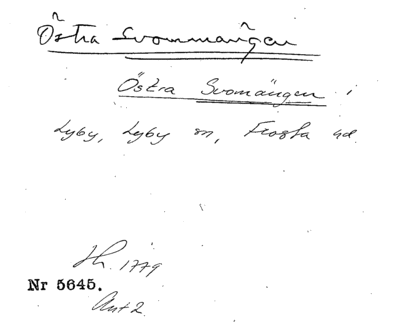 Östra Svommanͤgen
Östra Svomängen i
Lyby, Lyby sn, Frosta hd.
Lh. 1779
Nr 5645.
Akt 2.